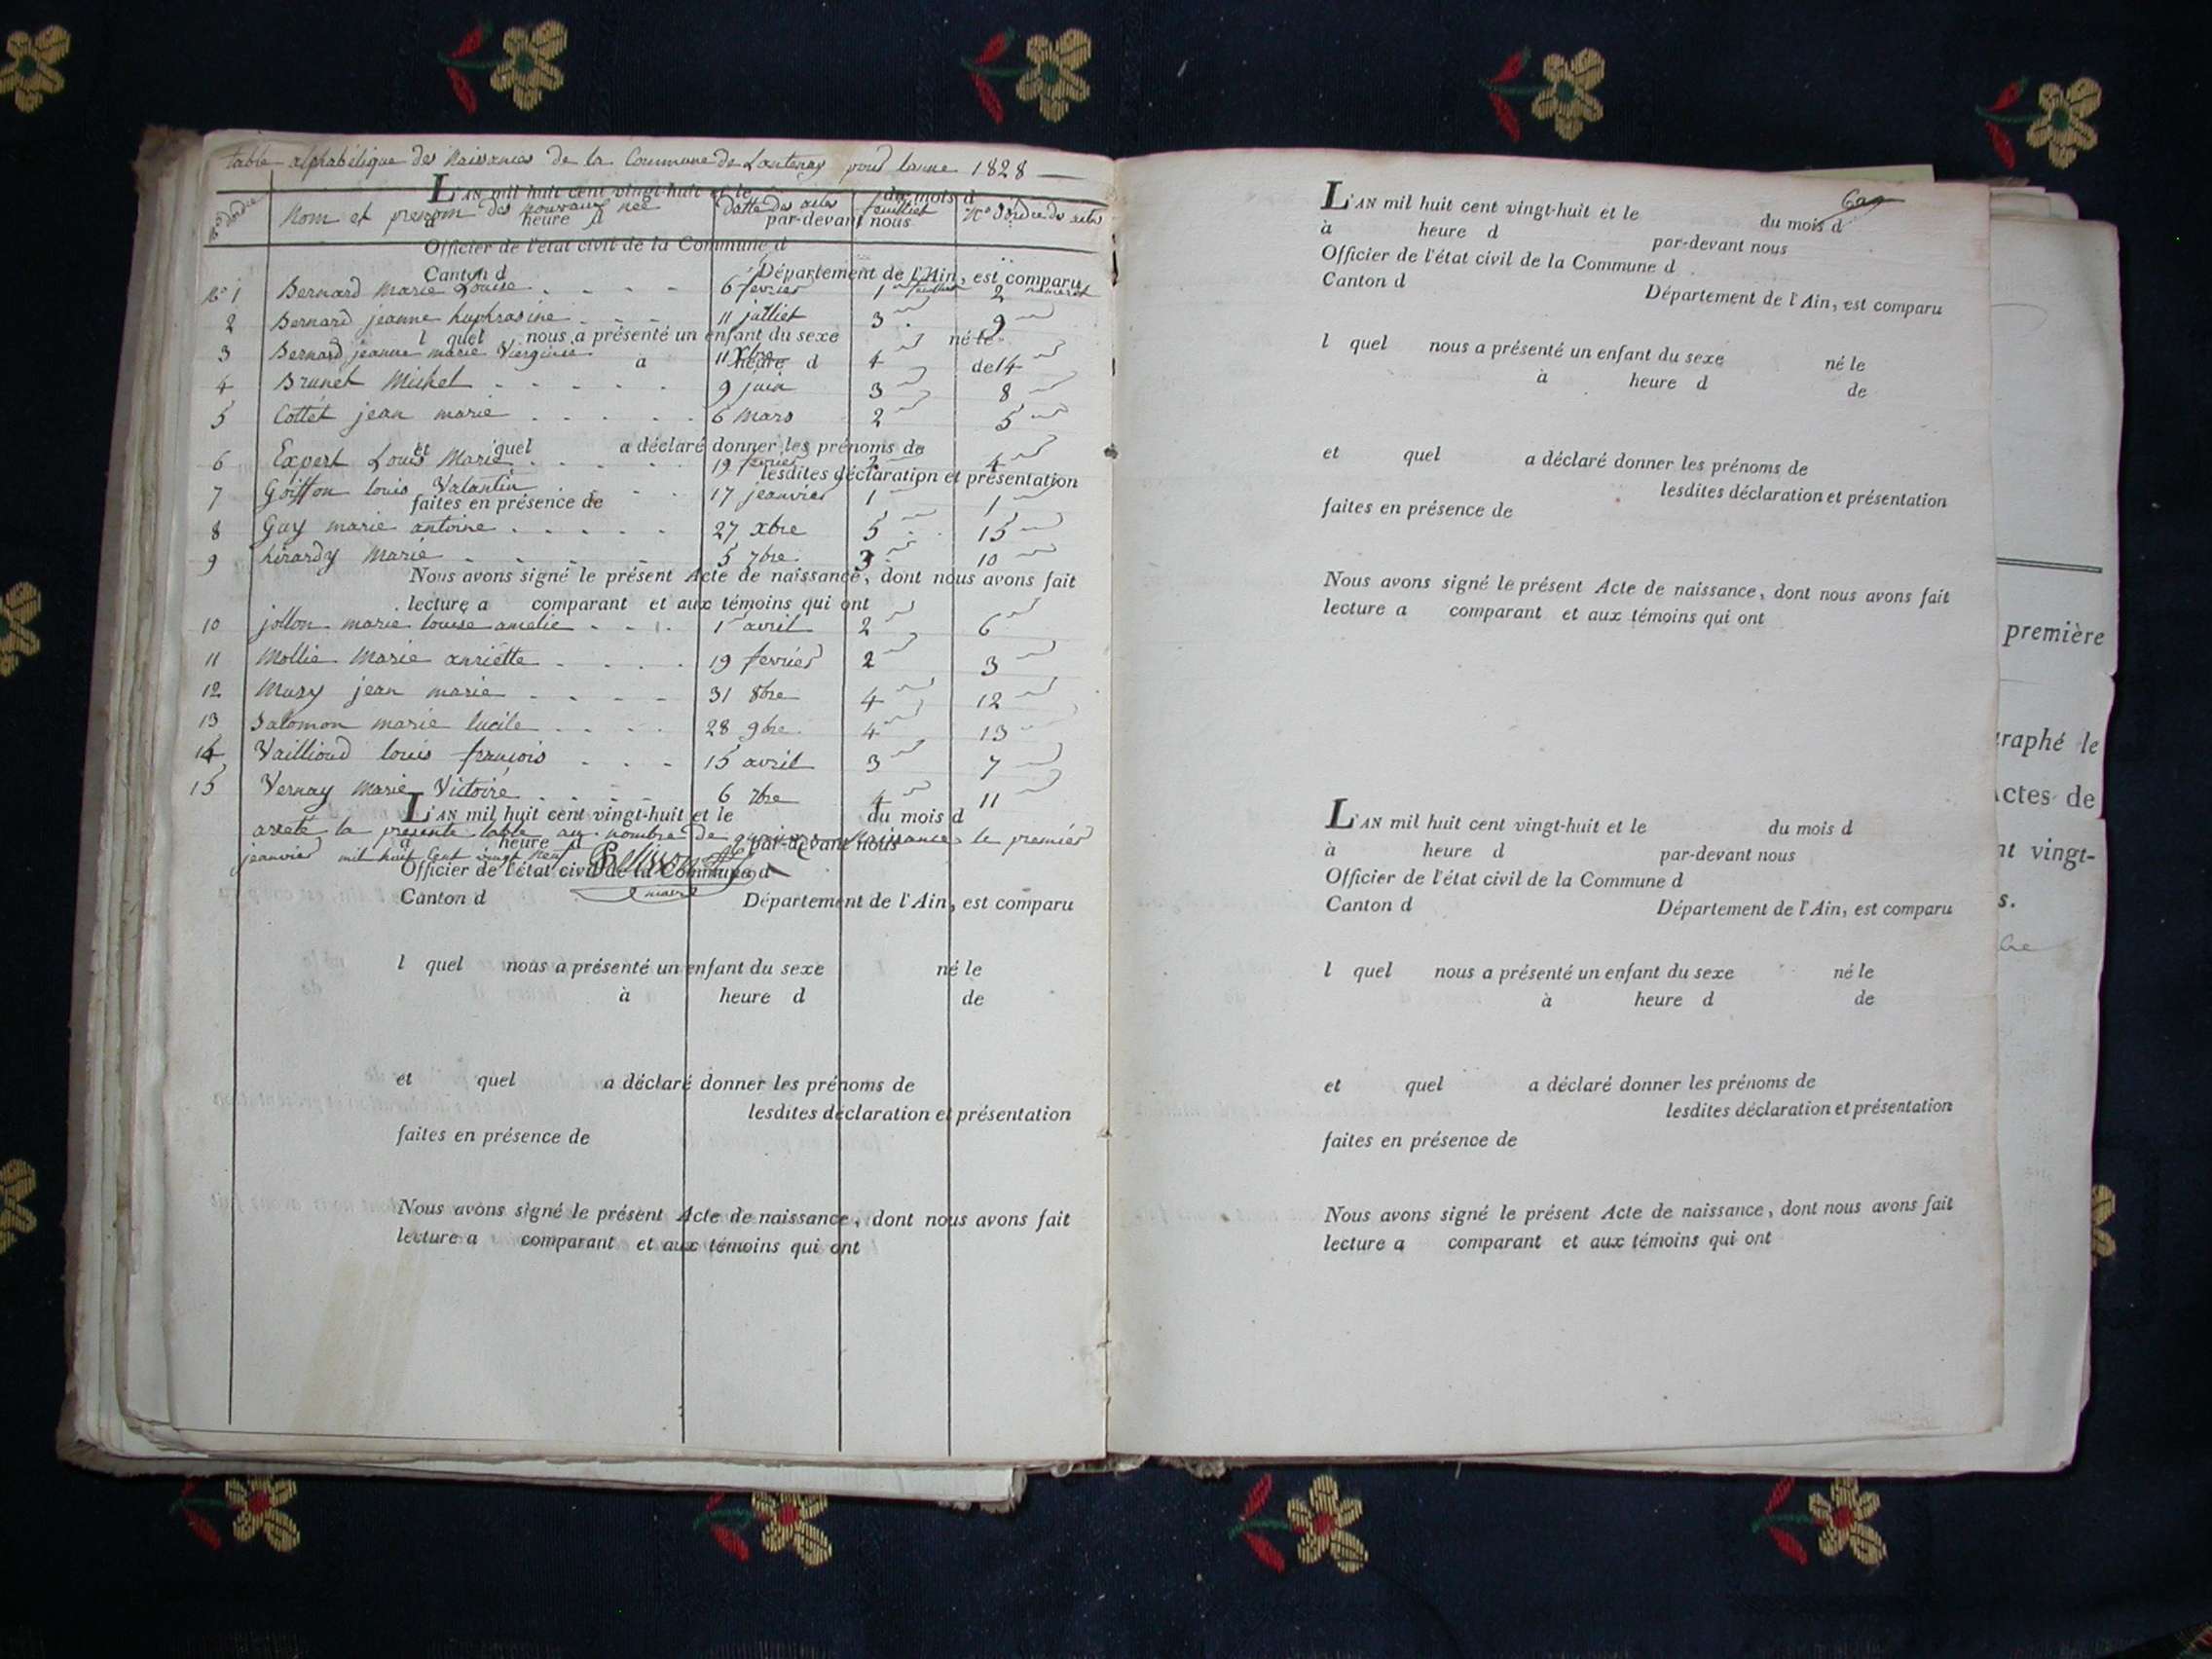 table alphabétique des Naissances de la Commune de Lantenay pour lanné 1828
L'AN mil huit cent vingt-huit et le du mois d
No dordre Nom et prenom des nouveaux née datte des actes feuilliet No dordre des actes
à heure d par-devant nous
Officier de l'état civil de la Commune d
Canton d Département de l'Ain, est comparu
No 1 Bernard Marie Louise 6 fevrier 1 feuillet 2 numero
2 Bernard jeanne huphrasine 11 julliet 3 9
l quel nous a présenté un enfant du sexe né le
3 Bernard jeanne marie Viergine 11 Xbre 4 14
à heure d de
4 Brunet Michel 9 juin 3 8
5 Cottet jean marie 6 mars 2 5
et quel a déclaré donner les prénoms de
6 Expert Louis Marie 19 fevrier 2 4
lesdites déclaration et présentation
7 Goiffon louis Valantin 17 jeanvier 1 1
faites en présence de
8 Guy marie antoine 27 xbre 5 15
9 hérardy Marie 5 7bre 3 10
Nous avons signé le présent Acte de naissance, dont nous avons fait
lecture a comparant et aux témoins qui ont
10 jollon marie louise amelie 1 avril 2 6
11 Mollie Marie anriette 19 fevrier 2 3
12 Mury jean marie 31 8bre 4 12
13 Salomon marie lucile 28 9bre 4 13
14 Vailloud louis francois 15 avril 3 7
15 Vernay Marie Victoire 6 7bre 4 11
L'AN mil huit cent vingt-huit et le du mois d
areté la presente table au nombre de quinze Naissances le premier
à heure d par-devant nous
jeanvier mil huit Cent vingt neuf
Officier de l'état civil de la Commune d
maire
Canton d Département de l'Ain, est comparu
l quel nous a présenté un enfant du sexe né le
à heure d de
et quel a déclaré donner les prénoms de
lesdites déclaration et présentation
faites en présence de
Nous avons signé le présent Acte de naissance, dont nous avons fait
lecture a comparant et aux témoins qui ont
L'AN mil huit cent vingt-huit et le du mois d
à heure d par-devant nous
Officier de l'état civil de la Commune d
Canton d Département de l'Ain, est comparu
l quel nous a présenté un enfant du sexe né le
à heure d de
et quel a déclaré donner les prénoms de
lesdites déclaration et présentation
faites en présence de
Nous avons signé le présent Acte de naissance, dont nous avons fait
lecture a comparant et aux témoins qui ont
L'AN mil huit cent vingt-huit et le du mois d
à heure d par-devant nous
Officier de l'état civil de la Commune d
Canton d Département de l'Ain, est comparu
l quel nous a présenté un enfant du sexe né le
à heure d de
et quel a déclaré donner les prénoms de
lesdites déclaration et présentation
faites en présence de
Nous avons signé le présent Acte de naissance, dont nous avons fait
lecture a comparant et aux témoins qui ont
première
raphé le
Actes de
nt vingt-
s.